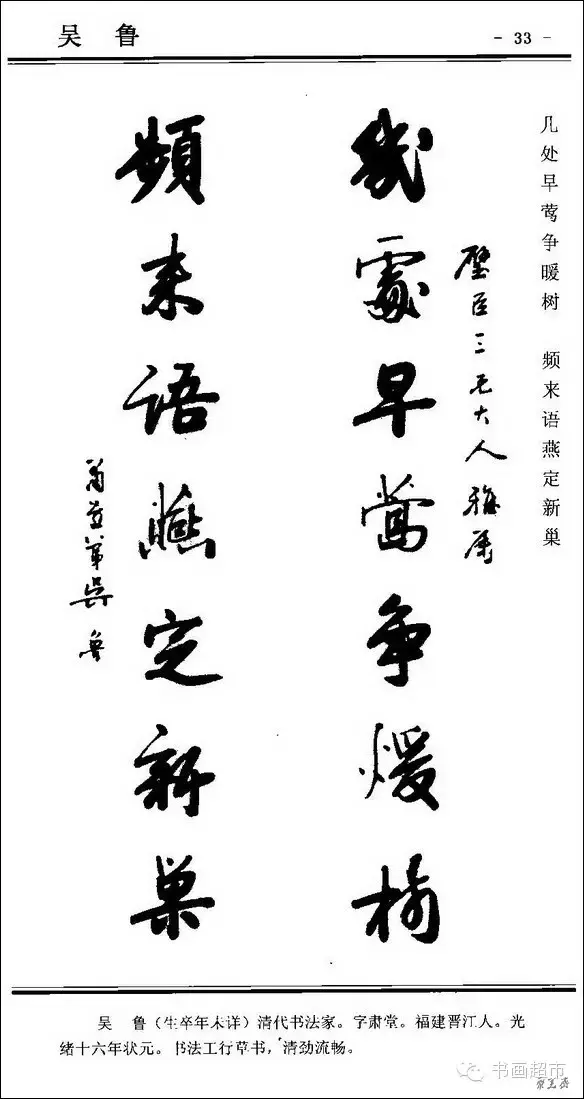 吴 鲁
- 33 -
几处早莺争暖树 频来语燕定新巢
璧臣三兄大人雅属
幾處早鶯争煖樹
頻来語燕定新巢
肅堂弟吳魯
吴 鲁（生卒年未详）清代书法家。字肃堂。福建晋江人。光
绪十六年状元。书法工行草书，清劲流畅。
书画超市